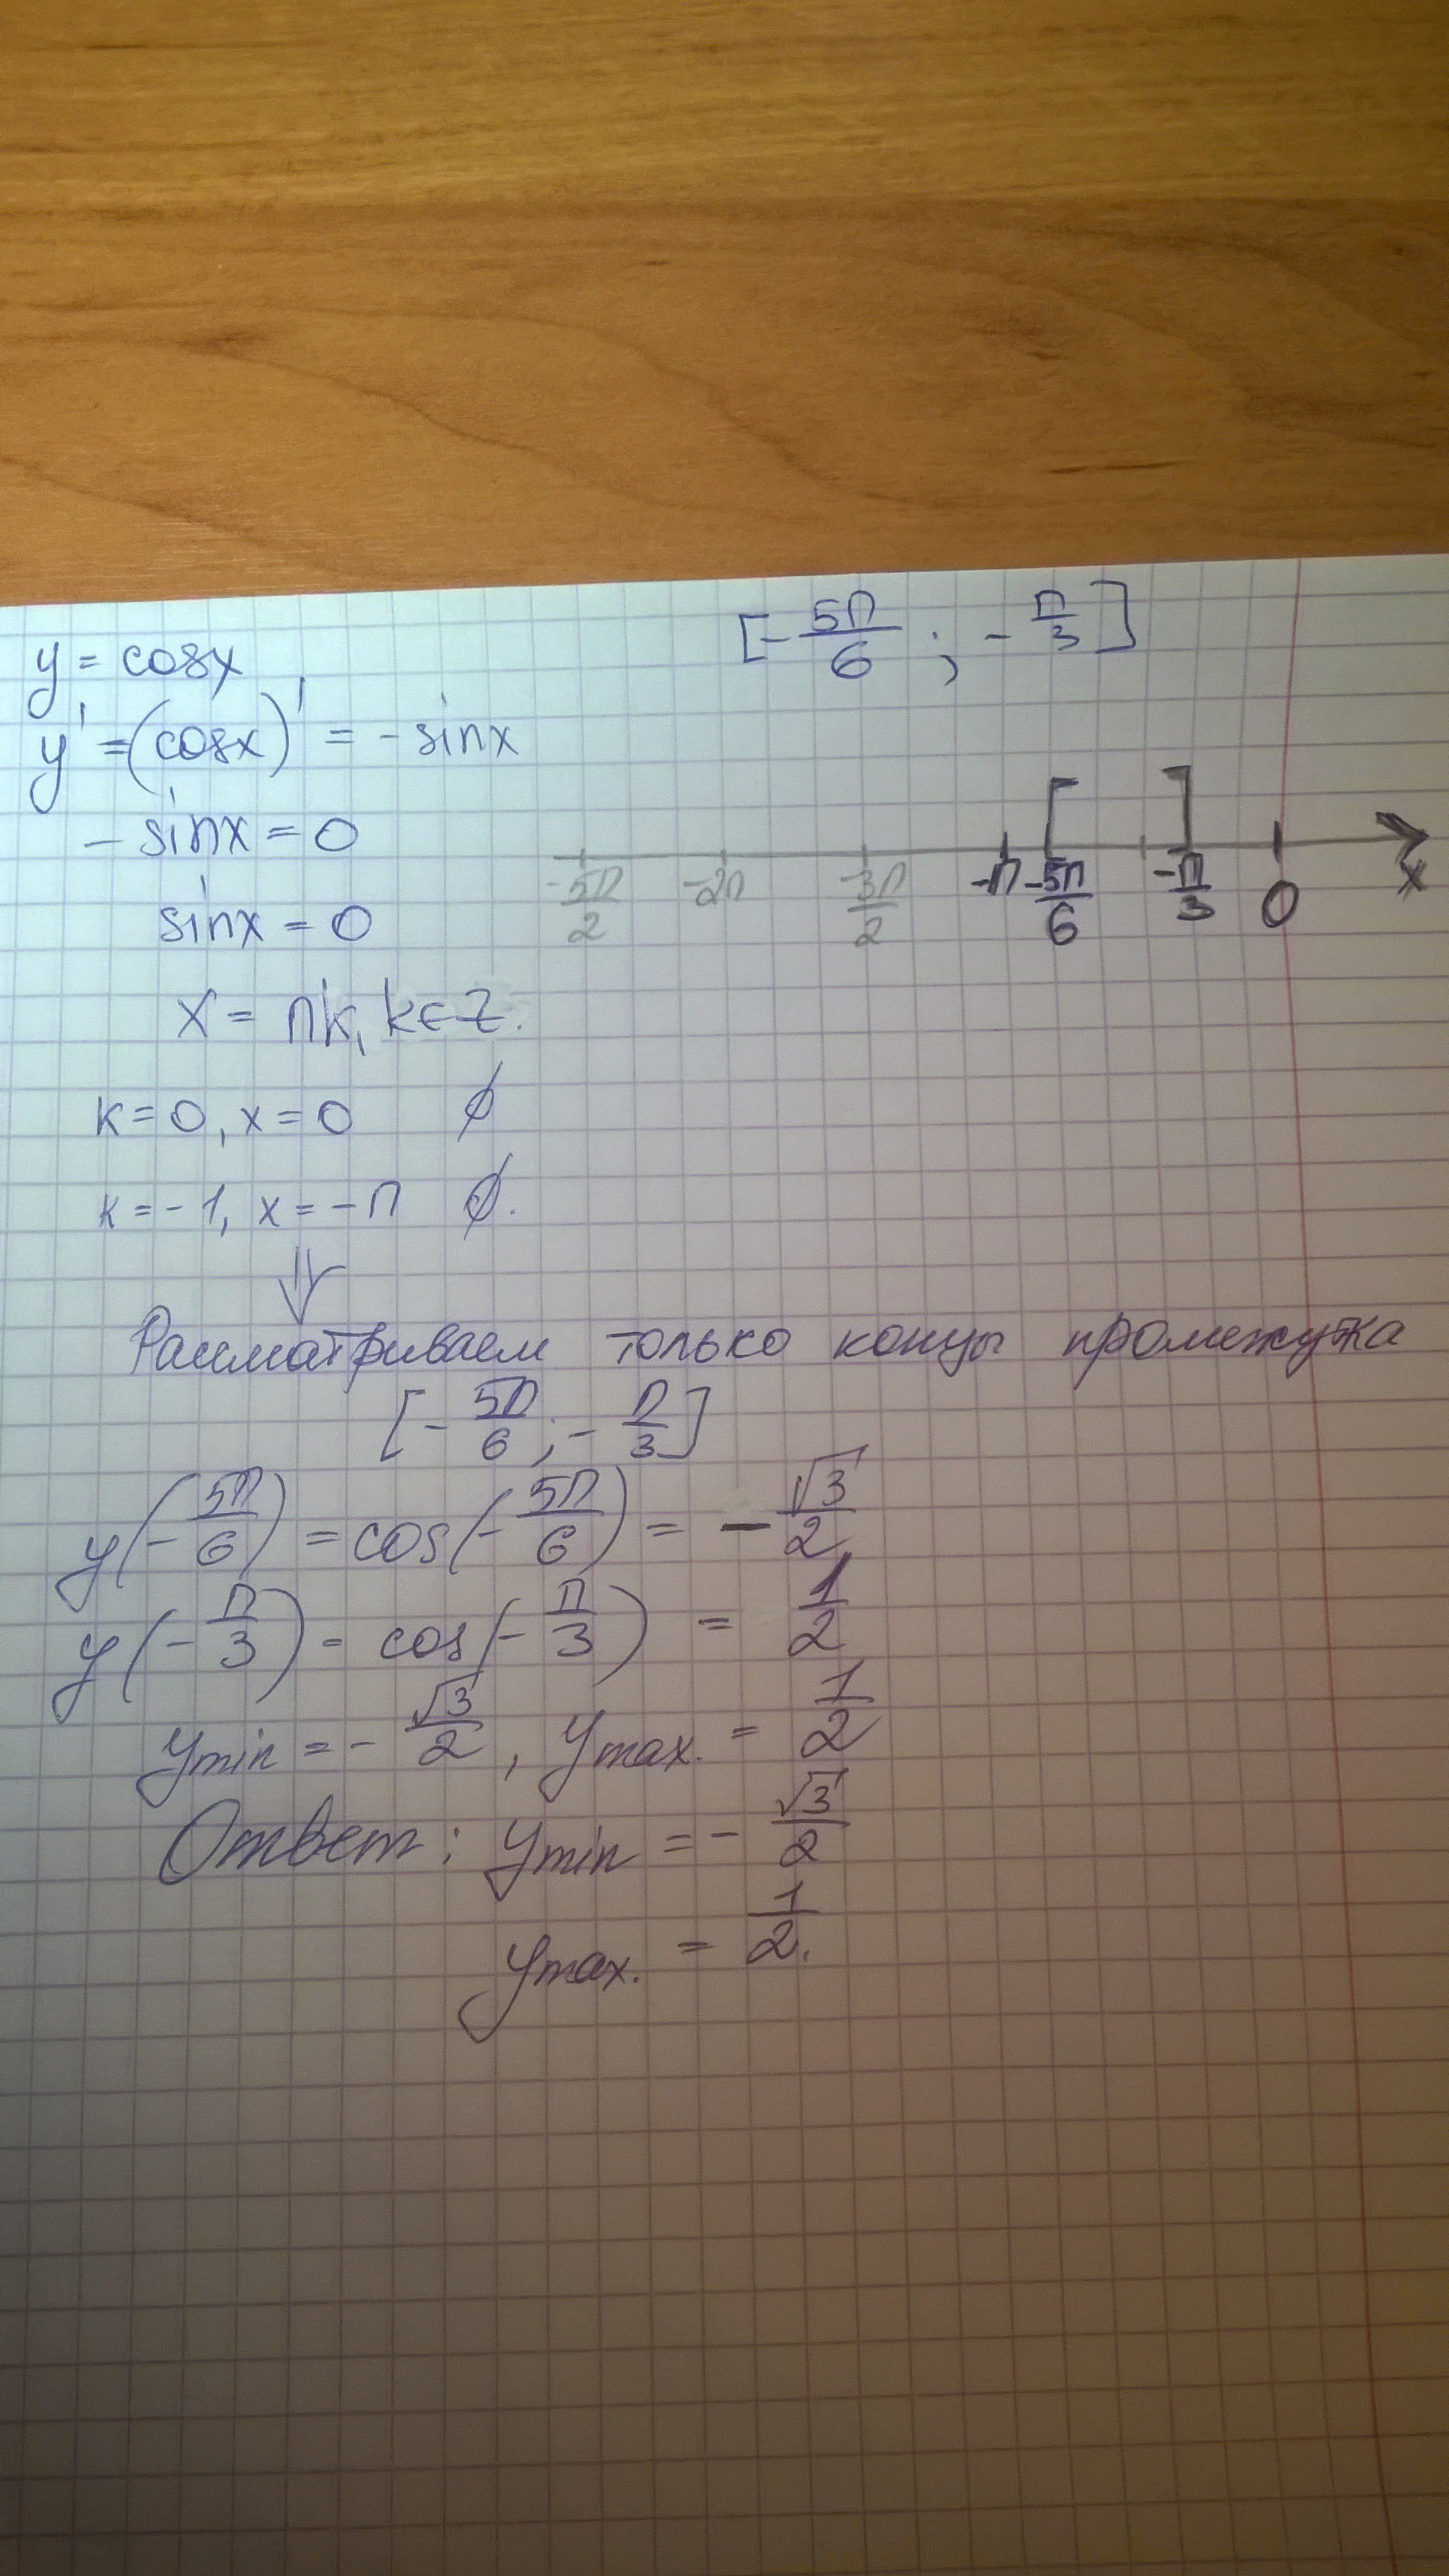 y = cosx [-5π/6 ; -π/3]
y' = (cosx)' = -sinx
- sinx = 0
-5π/2 -2π -3π/2 -π -5π/6 -π/3 0 x
sinx = 0
x = πk, k∈Z.
k=0, x=0 ∅
k=-1, x=-π ∅.
⇓
Рассматриваем только концы промежутка
[-5π/6 ; -π/3]
y(-5π/6) = cos(-5π/6) = -√3/2
y(-π/3) = cos(-π/3) = 1/2
ymin = -√3/2, ymax. = 1/2
Ответ: ymin = -√3/2
ymax. = 1/2.